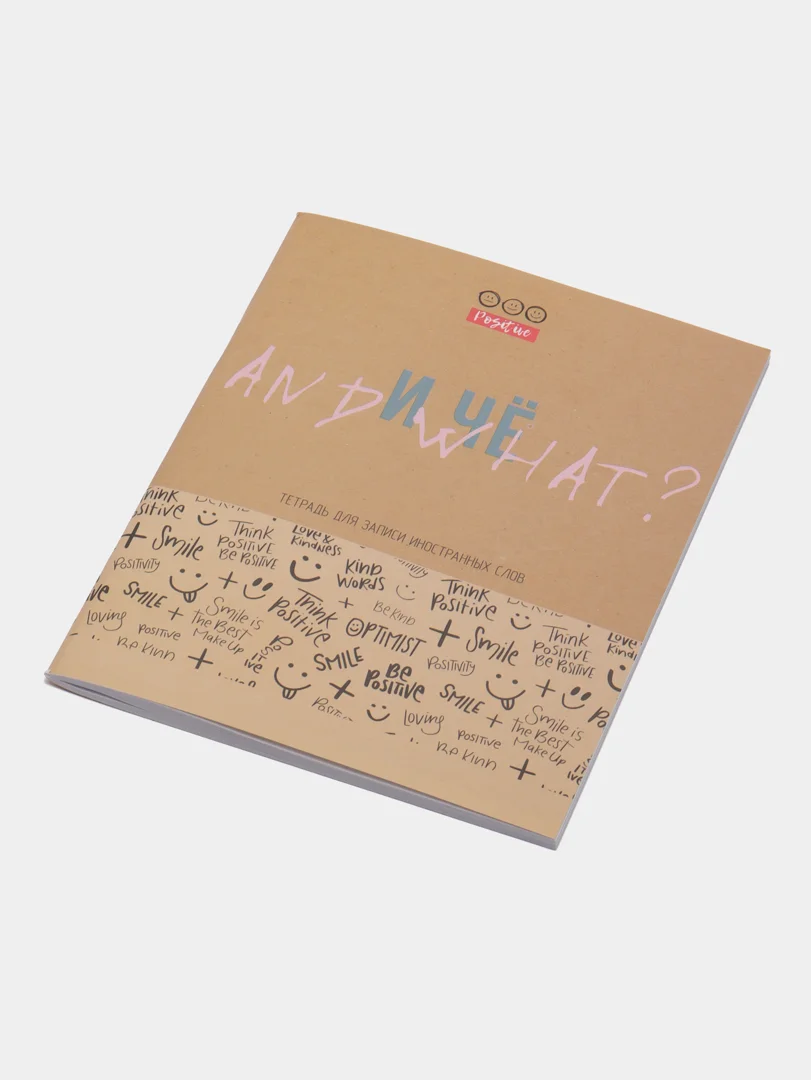 Positive
И ЧЁ
AND WHAT?
ТЕТРАДЬ ДЛЯ ЗАПИСИ ИНОСТРАННЫХ СЛОВ
Think
Positive
+ Smile
Positivity
Think
Positive
Be Positive
Love &
Kindness
Kind
Words
+
Be Kind
Think
Positive
Optimist
+ Smile
Positivity
Think
Positive
Be Positive
Love
Kind
SMILE +
Loving
Positive
Be Kind
+
Smile is
the Best
Make Up
Think
Positive
SMILE
+
Be
Positive
Loving
SMILE +
Positive
Be Kind
+
Smile is
the Best
Make Up